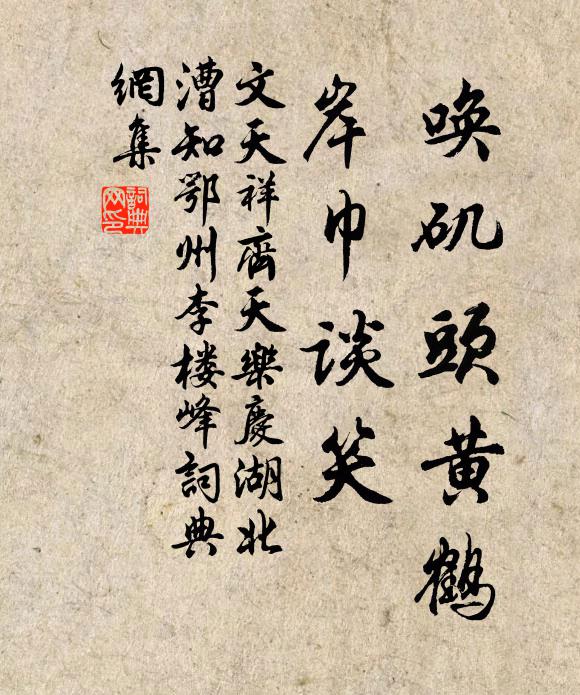 唤矶頭黄鹤
岸巾谈笑
文天祥齊天樂慶湖北
漕知鄂州李楼峰詞典
網集
詞典
网印